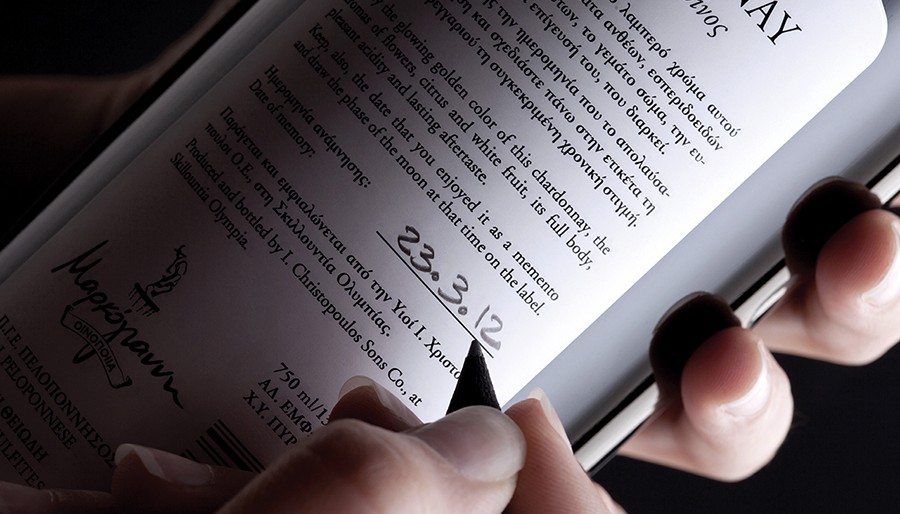 λαμπερό χρώμα αυτού
ανθέων, εσπεριδοειδών
το γεμάτο σώμα, την ευ-
επίγευσή του, που διαρκεί.
την ημερομηνία που το απολαύσα-
και σχεδιάστε πάνω στην ετικέτα τη
τη συγκεκριμένη χρονική στιγμή.
by the glowing golden color of this chardonnay, the
of flowers, citrus and white fruit, its full body,
pleasant acidity and lasting aftertaste.
Keep, also, the date that you enjoyed it as a memento
and draw the phase of the moon at that time on the label.
Ημερομηνία ανάμνησης:
Date of memory:
23.3.12
Παράγεται και εμφιαλώνεται από την Υιοί Ι. Χριστο
πουλοι Ο.Ε., στη Σκιλλουντία Ολυμπίας.
Produced and bottled by I. Christopoulos Sons Co., at
Skillountia Olympia.
Μαρκόγιαννη
ΟΙΝΟΠΟΙΙΑ
750 ml
ΑΔ. ΕΜΦ
Χ.Υ. ΠΥΡ
ΠΕΛΟΠΟΝΝΗΣΟΣ
PELOPONNESE